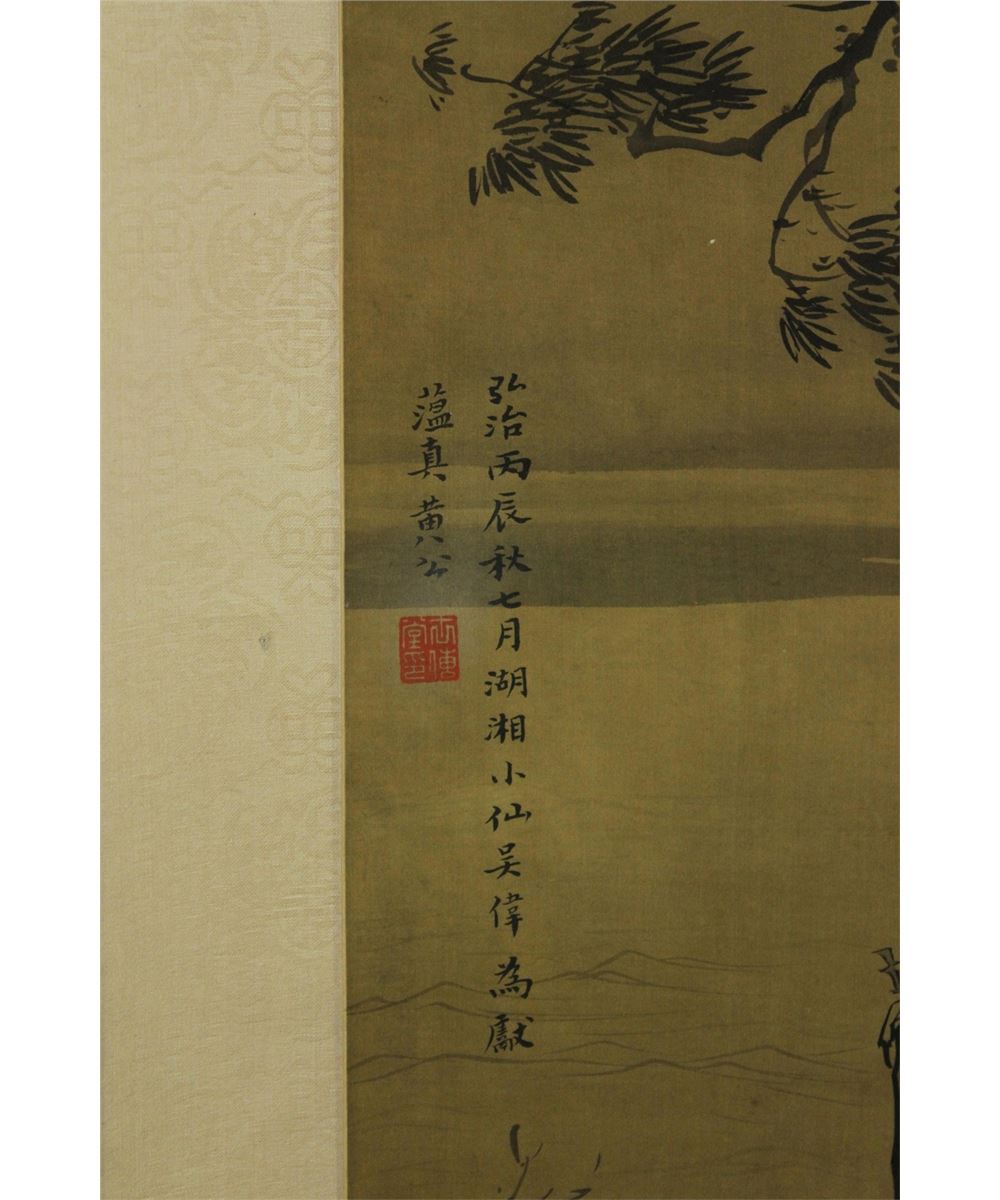 弘治丙辰秋七月湖湘小仙吳偉為獻
薀真黃公